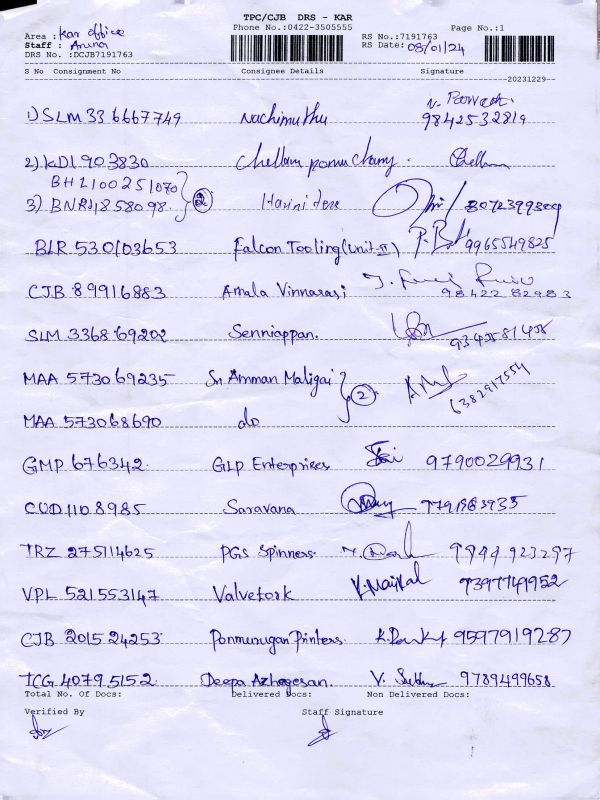 TPC/CJB DRS - KAR
Phone No.:0422-3505555
Page No.:1
Area : Kar office
Staff : Aruna
DRS No. :DCJB7191763
RS No.:7191763
RS Date: 08/01/24
S No Consignment No Consignee Details Signature
20231229
1) SLM 336667749 Nachimuthu 9842532819
2) KDI 903830 Chellam ponnuchamy.
BHL100251070
3) BNR 118558098. } 2 8072399309
BLR 530103653 Falcon Tooling (Unit II) 9965549825
CJB 89916883 Amala Vinnarasi 98422 82983
SLM 336869202 Senniappan. 9345581455
MAA 573069235 Sri Amman Maligai } 2 6382917554
MAA 573068690 do
GMP 676342 GLP Enterprises 9790029931
CUD 1108985 Saravana
TRZ 275114625 PGS Spinners. 9944 923297
VPL 521553147 Valvetork 7397749952
CJB 201524253 Ponmurugan Printers. 9597919287
TCG 40795152 Deepa Azhagesan. 9789499658
Total No. Of Docs: Delivered Docs: Non Delivered Docs:
Verified By Staff Signature